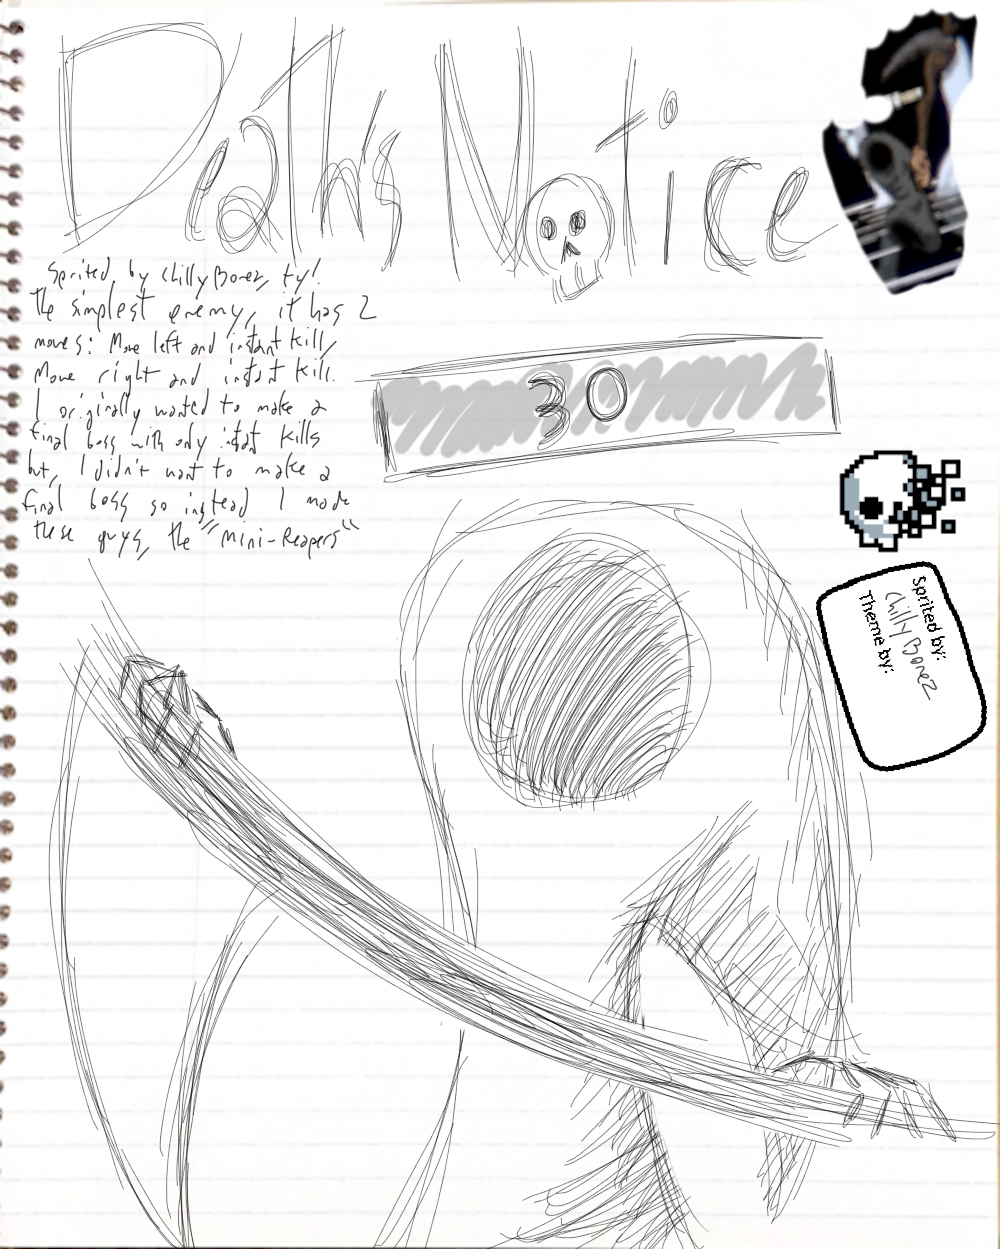 Death's Notice
Sprited by ChillyBonez, ty!
The simplest enemy, it has 2
moves: Move left and instant kill,
Move right and instant kill.
I originally wanted to make a
final boss with only instat kills
but, I didn't want to make a
final boss so instead I made
these guys, the "Mini-Reapers"
30
Sprited by:
ChillyBoneZ
Theme by: